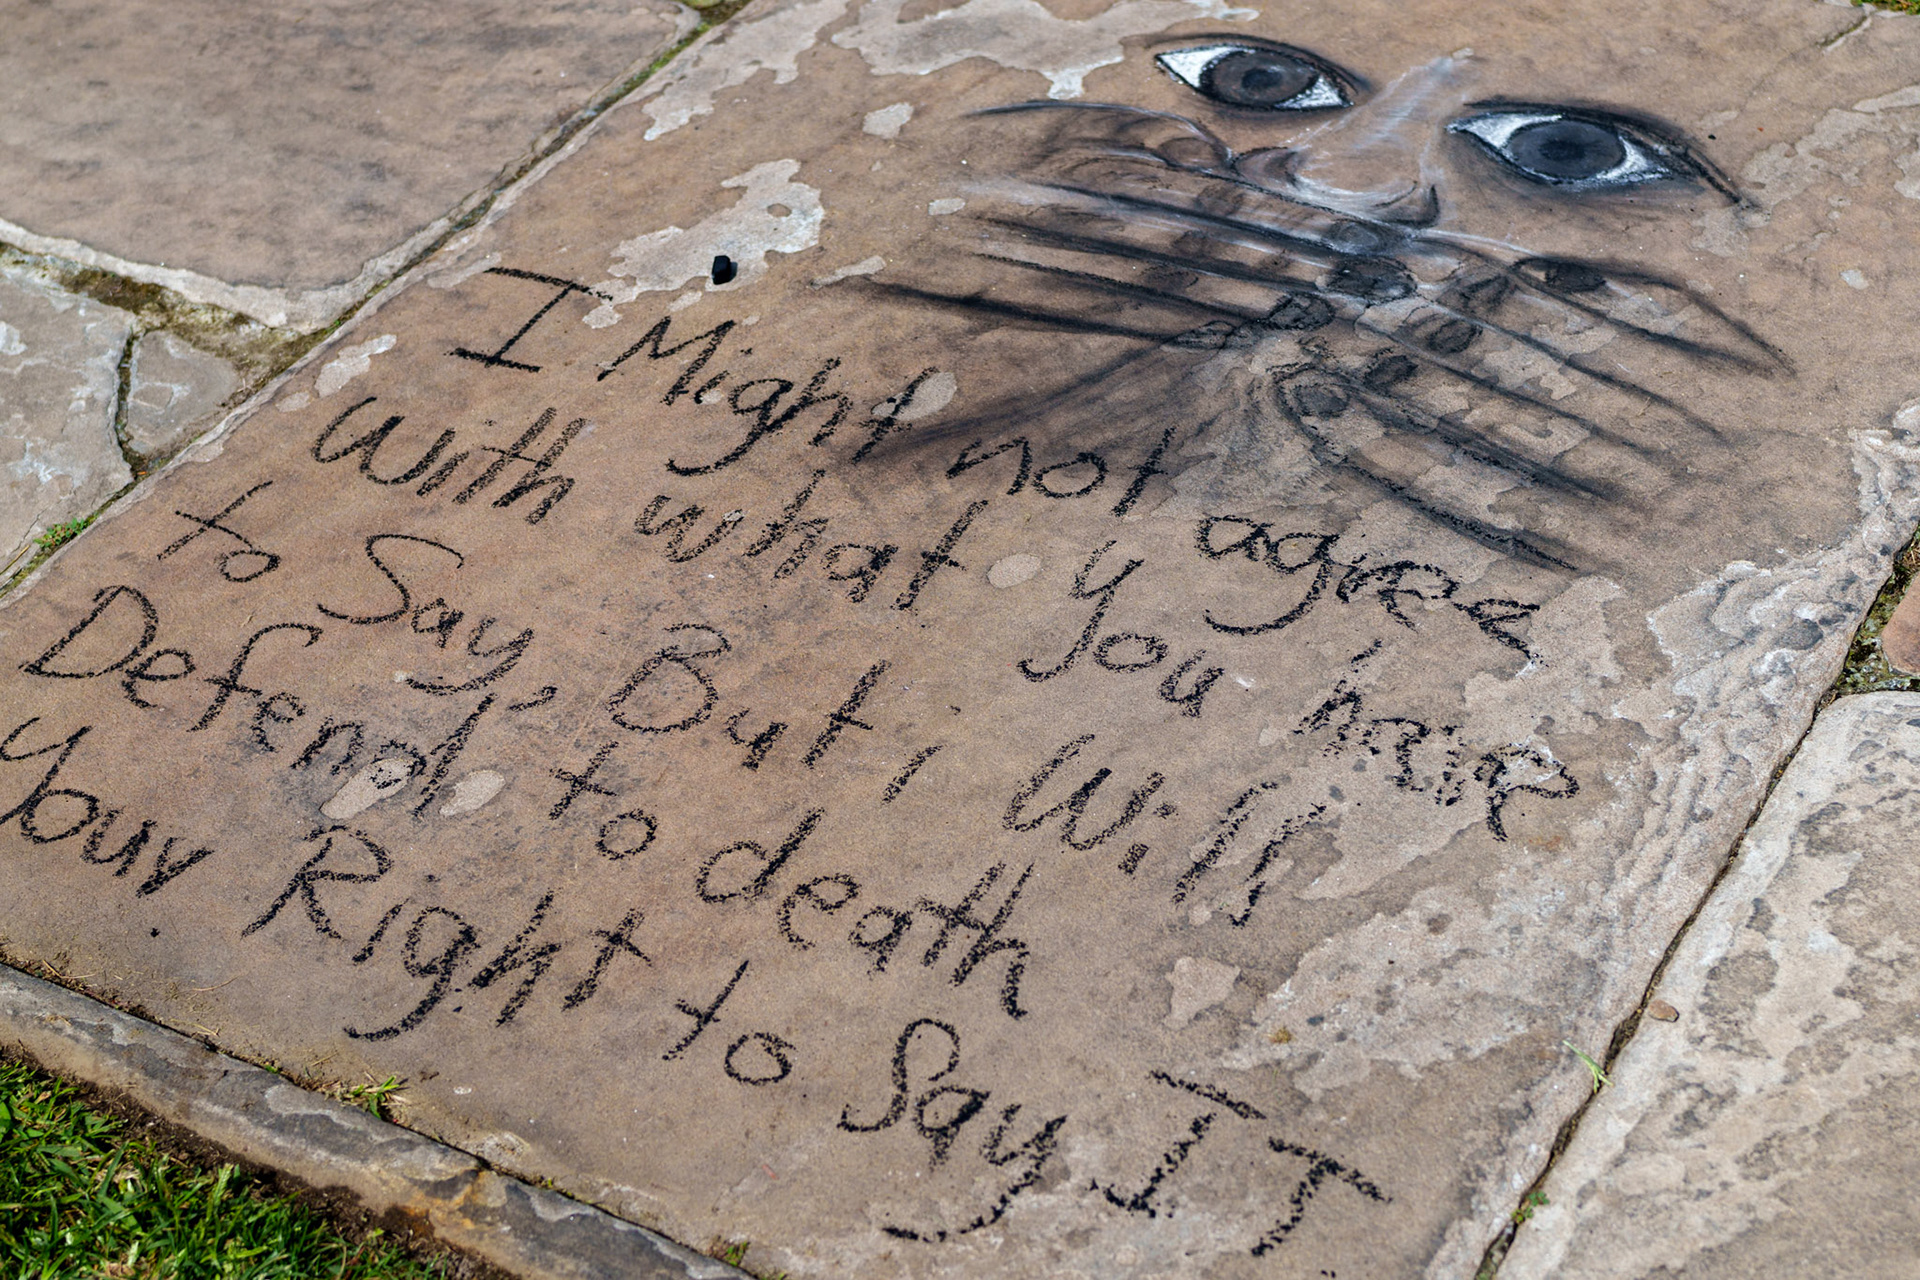 I Might not agree
With what you have
to Say, But i Will
Defend to death
your Right to Say IT